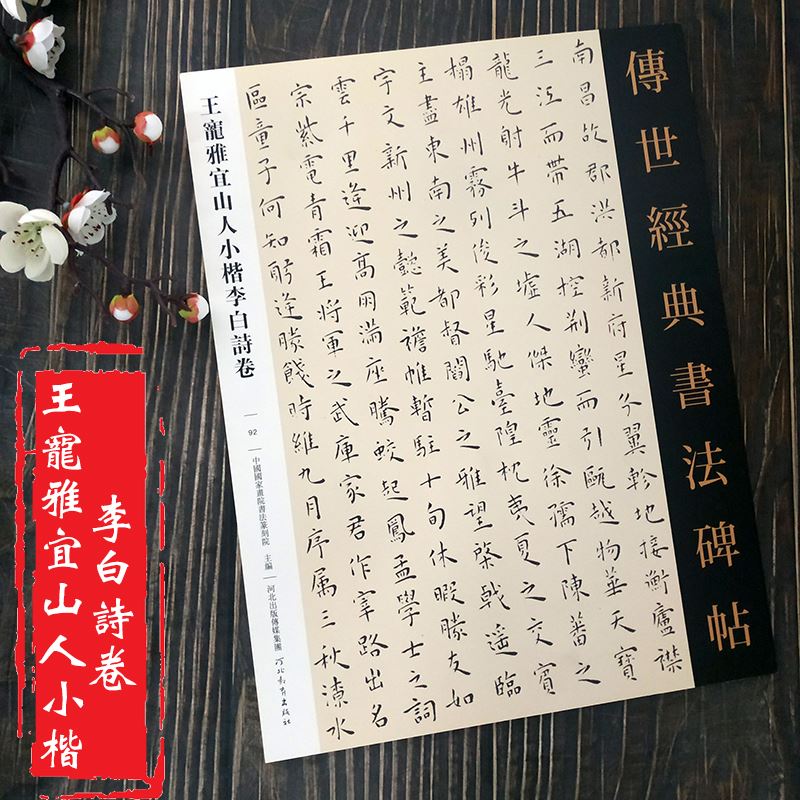 傳世經典書法碑帖
南昌故郡洪都新府星分翼軫地接衡廬襟
三江而帶五湖控荊蠻而引甌越物華天寶
龍光射牛斗之墟人傑地靈徐孺下陳蕃之
榻雄州霧列俊彩星馳臺隍枕夷夏之交賓
主盡東南之美都督閻公之雅望棨戟遙臨
宇文新州之懿範襜帷暫駐十旬休暇勝友如
雲千里逢迎高朋滿座騰蛟起鳳孟學士之詞
宗紫電青霜王將軍之武庫家君作宰路出名
區童子何知躬逢勝餞時維九月序属三秋潦水
王寵雅宜山人小楷李白詩卷
92
中國國家畫院書法篆刻院 主編
河北出版傳媒集團 河北教育出版社
王寵雅宜山人小楷
李白詩卷